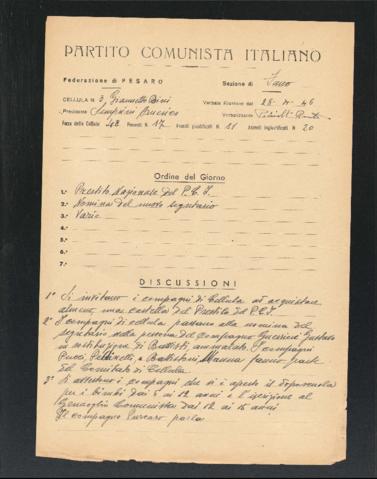 PARTITO COMUNISTA ITALIANO
Federazione di PESARO
Sezione di Fano
CELLULA N. 3,
Verbale Riunione del 28 - 46
Presidente
Verbalizzante
Forza della Cellula 48 Presenti N. 17 Assenti giustificati N. 11 Assenti ingiustificati N. 20
Ordine del Giorno
1.° Prestito Nazionale del P.C.I.
2.° Nomina del nuovo segretario
3.° Varie
4.°
5.°
6.°
7.°
DISCUSSIONI
1° Si invitano i compagni di Cellula ad acquistare
almeno una cartella del Prestito del P.C.I.
2° I compagni di cellula passano alla nomina del
segretario nella persona del compagno
in sostituzione di Battisti, ammalato. I compagni
Pucci, e Battistoni, fanno parte
del Comitato di Cellula
3° Si avvertono i compagni che si è aperto il doposcuola
per i bimbi dai 5 ai 12 anni e l'iscrizione al
Comunista dai 12 ai 15 anni
Il compagno parla